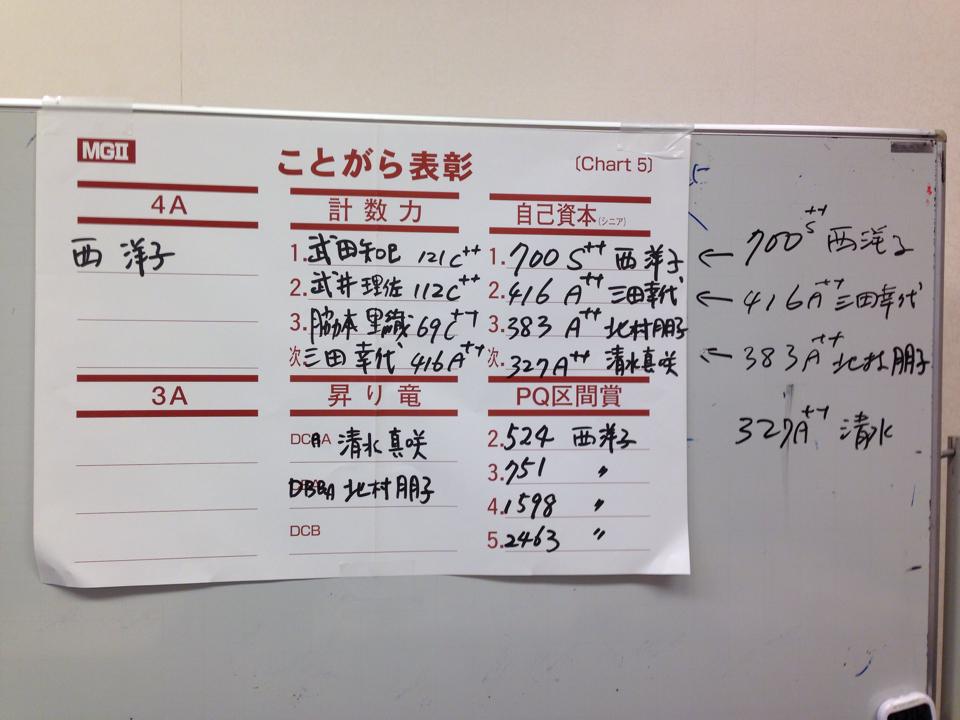 MGⅡ
ことがら表彰
〔Chart 5〕
4A
西 洋子
計数力
1. 武田知巳 121C++
2. 武井理佐 112C++
3. 脇本里織 69C++
次 三田幸代 416A++
自己資本(シニア)
1. 700 S++ 西洋子
2. 416 A++ 三田幸代
3. 383 A++ 北村朋子
次. 327A++ 清水真咲
3A
昇り竜
清水真咲
DBBA 北村朋子
DCB
PQ区間賞
2. 524 西洋子
3. 751 〃
4. 1598 〃
5. 2463 〃
← 700S++ 西洋子
← 416A++ 三田幸代
← 383A++ 北村朋子
327A++ 清水